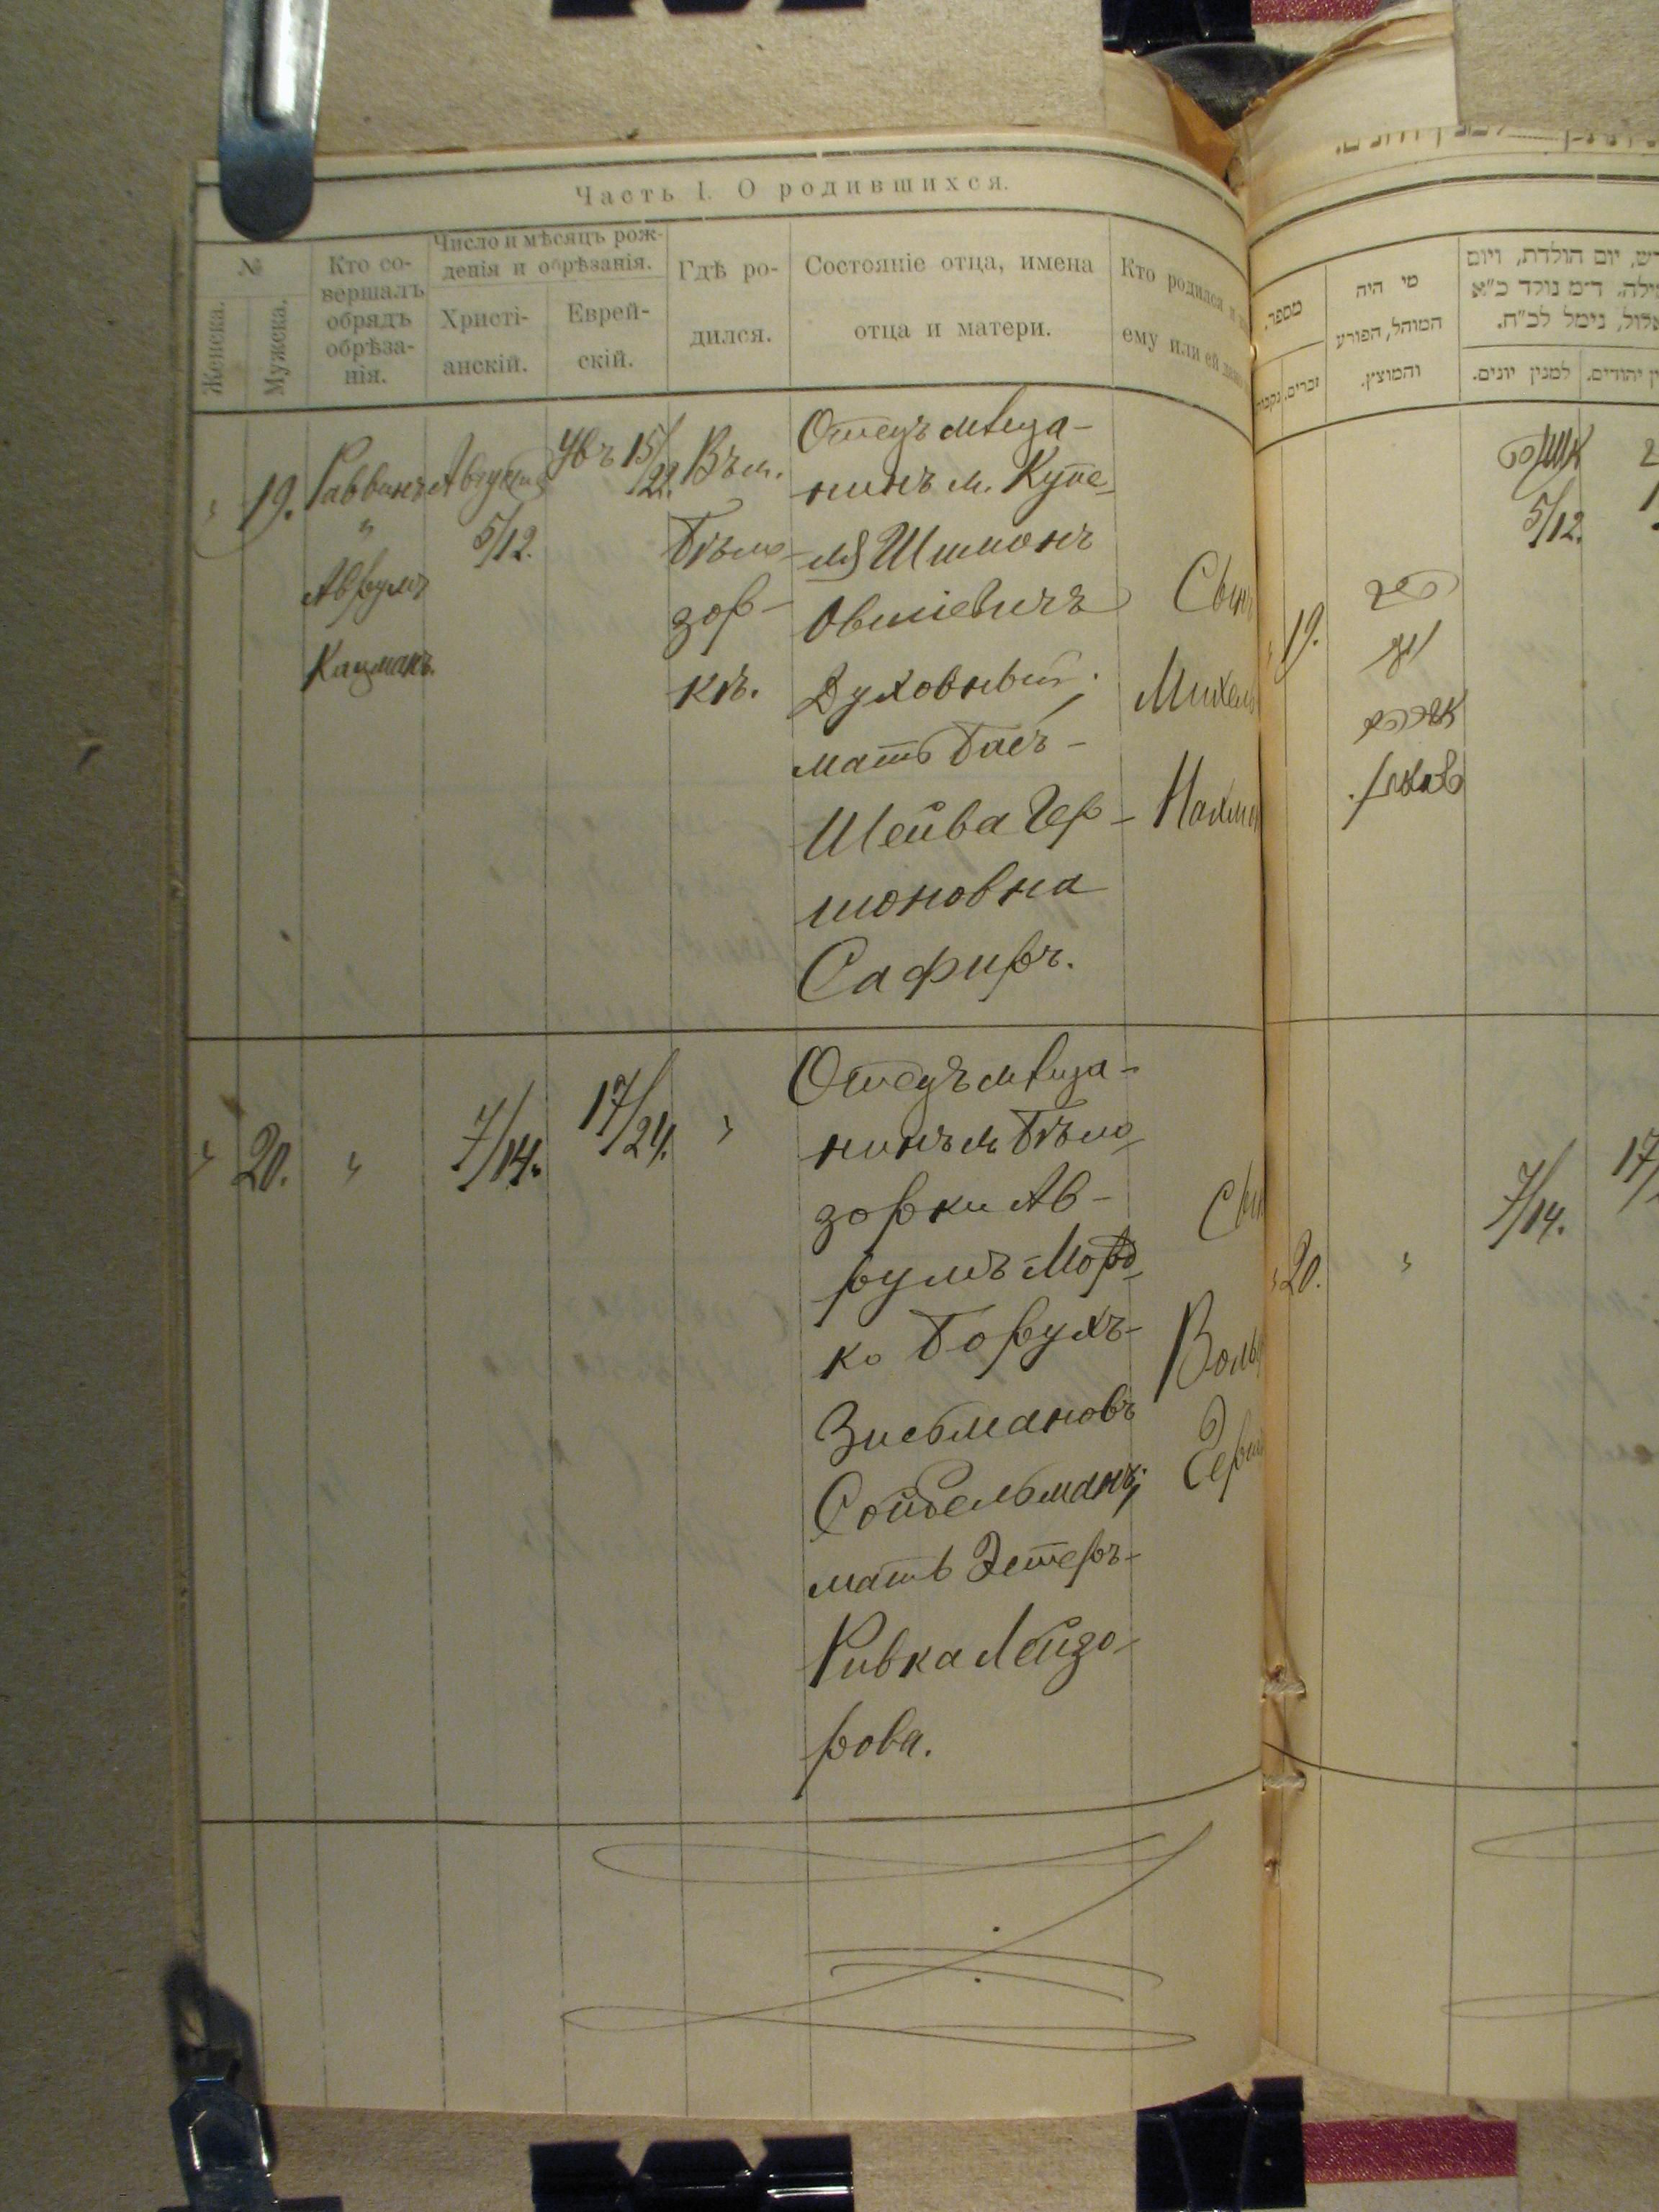 Часть I. О родившихся.
№
Женска.
Мужска.
Кто со-
вершалъ
обрядъ
обрѣза-
нія.
Число и мѣсяцъ рож-
денія и обрѣзанія.
Христі-
анскій.
Еврей-
скій.
Гдѣ ро-
дился.
Состояніе отца, имена
отца и матери.
Кто родился и
ему или ей
19.
Раввинъ
"
Аврумъ
Кацманъ.
Августъ
5/12.
15/22.
Въ м.
Бѣло-
зор-
кѣ.
Отецъ мѣща-
нинъ м. Купе-
ля Шимонъ
Овшіевичъ
Духовный;
мать Бас-
Шейва Гер-
шоновна
Сафиръ.
Сынъ
Михель
Нахман
20.
"
7/14.
17/24.
"
Отецъ мѣща-
нинъ м. Бѣло-
зорки Ав-
румъ Морд-
ко Борухъ-
Зисьмановъ
Сойбельманъ;
мать Эстеръ-
Ривка Лейзо-
рова.
Сын
Воль
Герш
מספר.
זכרים.
נקבות
מי היה
המוהל, הפורע
והמוצץ.
יום הולדת, ויום
ד״מ נולד כ״א
נימל לכ״ח.
למנין יונים.
יהודים.
19.
5/12.
20.
"
7/14.
17/